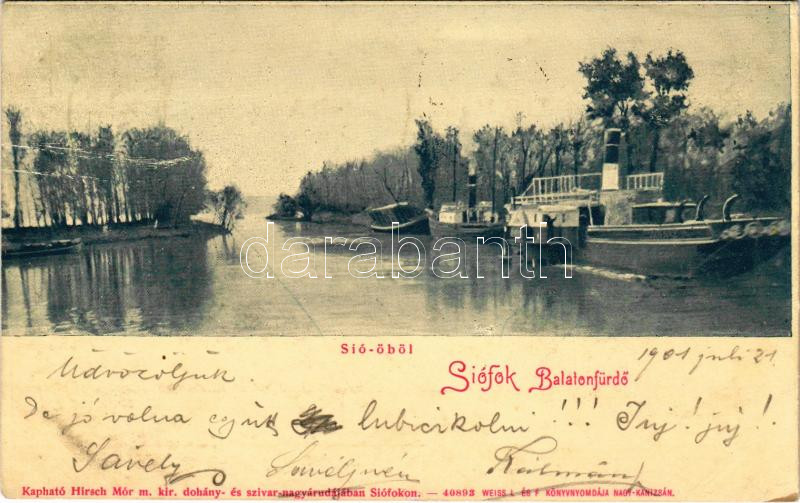 darabanth
Sió-öböl
1901 juli 21
Siófok Balatonfürdő
Üdvözöljük.
De jó volna együtt lubiczkolni !!! Juj! juj!
Sávely Sávelyné Kálmán
Kapható Hirsch Mór m. kir. dohány- és szivar-nagyárudájában Siófokon. — 40893 WEISS L. ÉS F. KÖNYVNYOMDÁJA NAGY-KANIZSÁN.